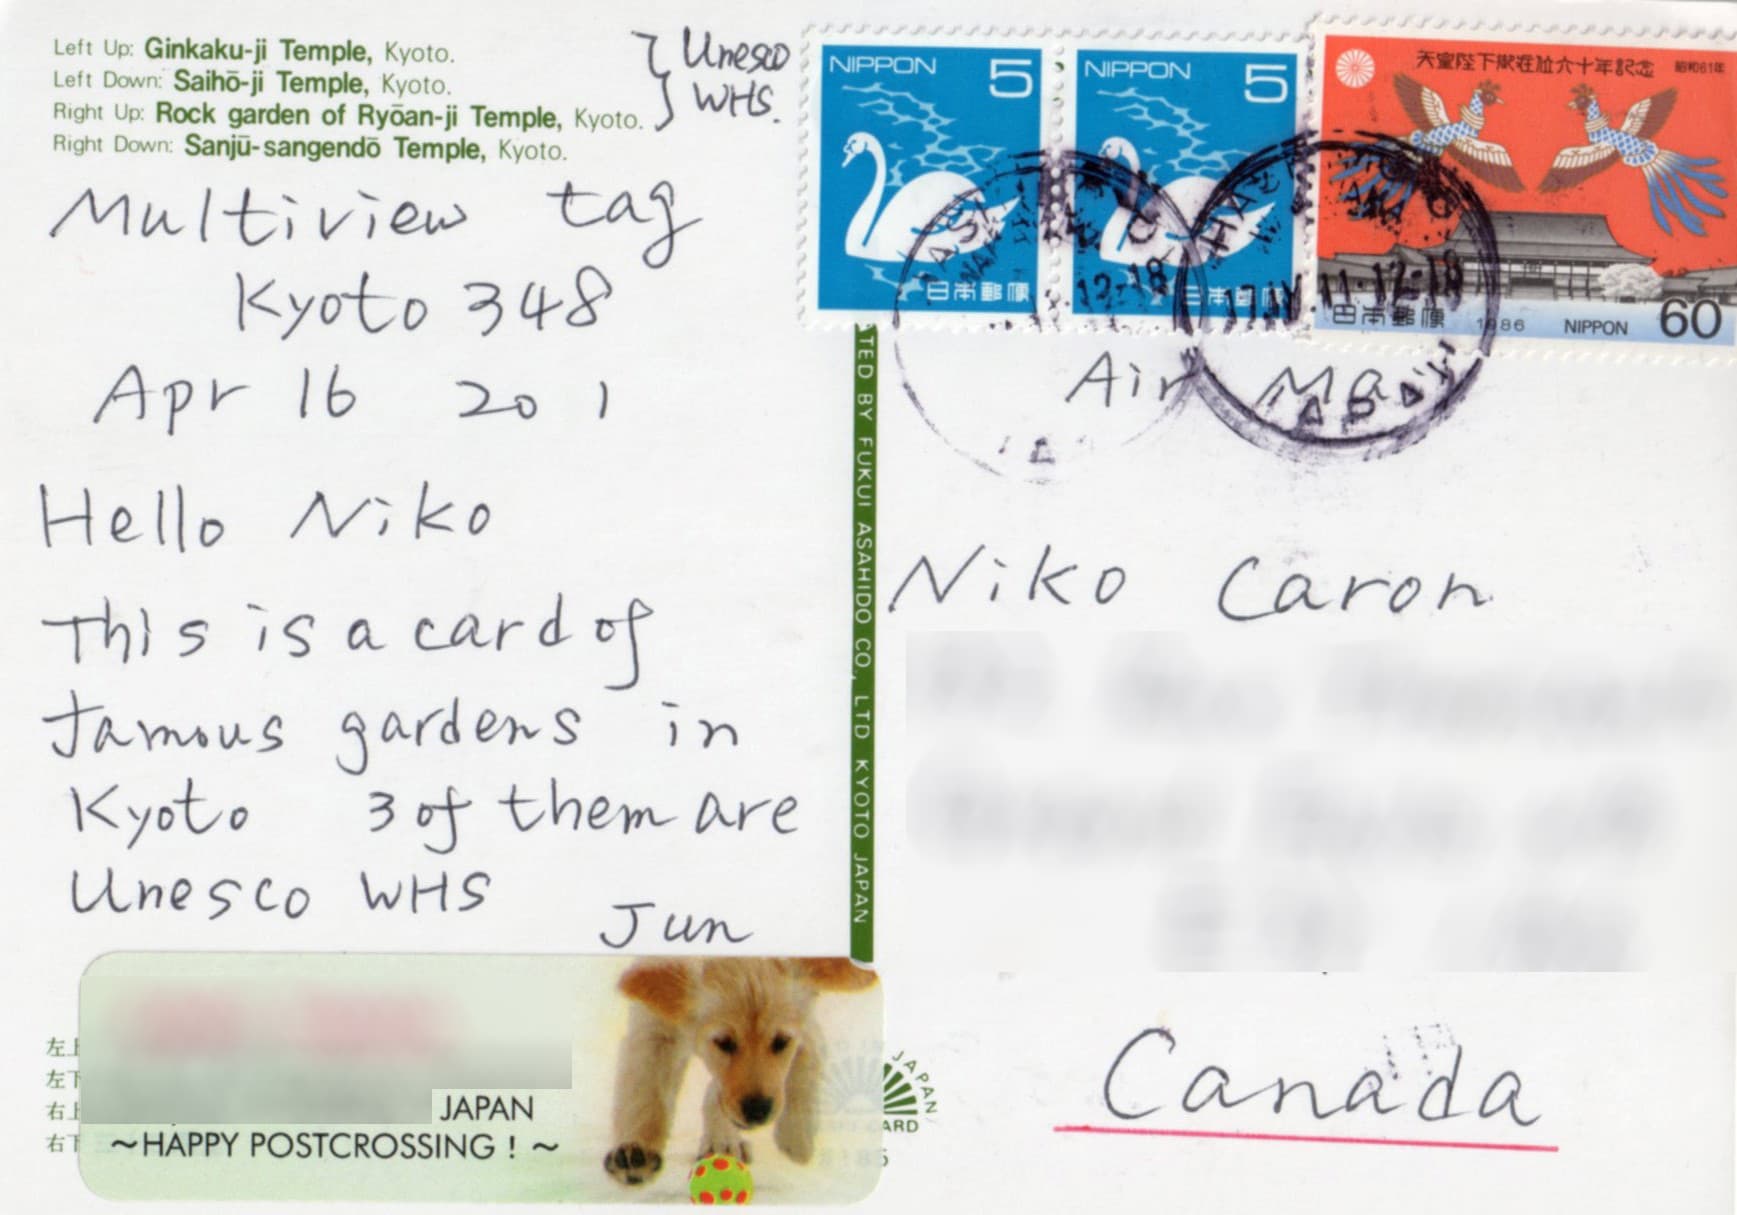 Left Up: Ginkaku-ji Temple, Kyoto.
Left Down: Saihō-ji Temple, Kyoto.
Right Up: Rock garden of Ryōan-ji Temple, Kyoto.
Right Down: Sanjū-sangendō Temple, Kyoto.
Unesco
WHS.
Multiview tag
Kyoto 348
Apr 16 201
Hello Niko
This is a card of
famous gardens in
Kyoto 3 of them are
Unesco WHS
Jun
左上
左下
右上
右下
JAPAN
~HAPPY POSTCROSSING ! ~
TED BY FUKUI ASAHIDO CO., LTD KYOTO JAPAN
NIPPON 5
日本郵便
NIPPON 5
日本郵便
天皇陛下御在位六十年記念 昭和61年
日本郵便 1986 NIPPON 60
12-18
17.IV 11.12-18
JAPAN
Air Ma
Niko Caron
Canada
JAPAN
ARD